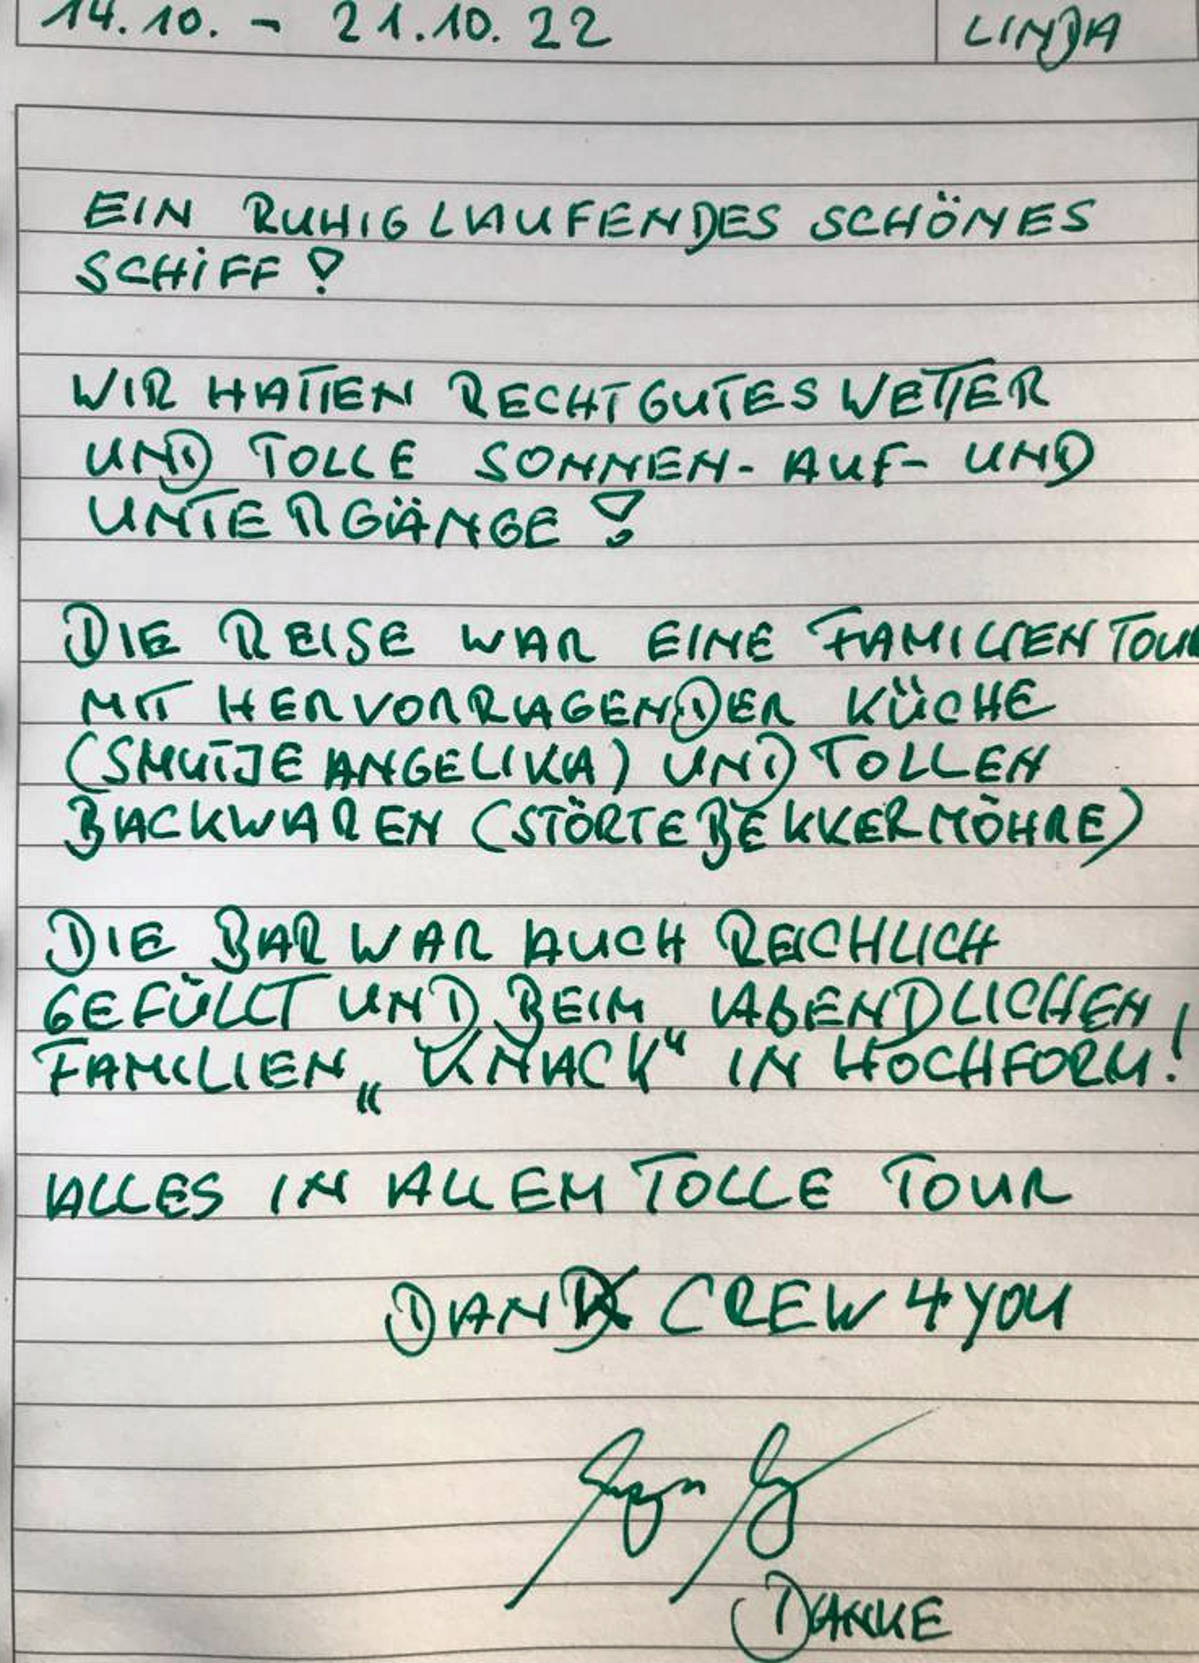 14.10. - 21.10.22 LINDA
EIN RUHIG LAUFENDES SCHÖNES
SCHIFF!
WIR HATTEN RECHT GUTES WETTER
UND TOLLE SONNEN- AUF- UND
UNTERGÄNGE!
DIE REISE WAR EINE FAMILIENTOUR
MIT HERVORRAGENDER KÜCHE
(SMUTJE ANGELIKA) UND TOLLEN
BACKWAREN (STÖRTEBEKKERMÖHRE)
DIE BAR WAR AUCH REICHLICH
GEFÜLLT UND BEIM ABENDLICHEN
FAMILIEN „KNACK“ IN HOCHFORM!
ALLES IN ALLEM TOLLE TOUR
DANK CREW 4 YOU
DANKE